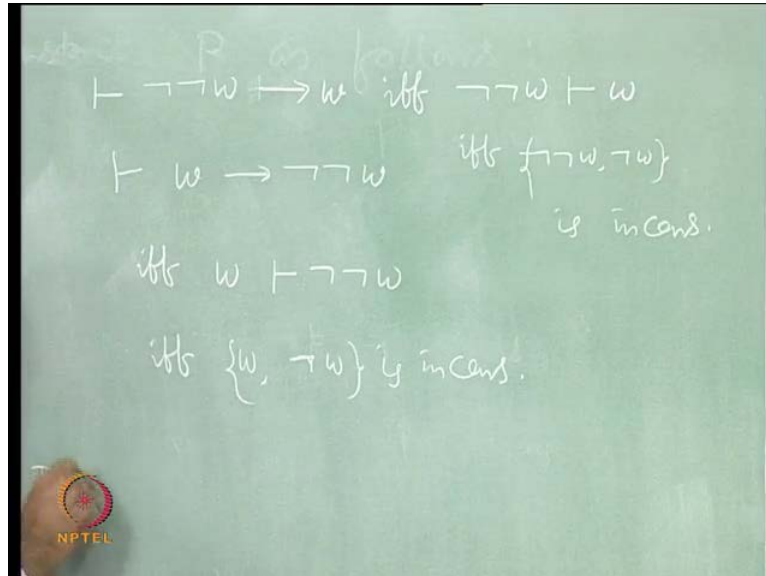 ⊢ ¬¬w → w iff ¬¬w ⊢ w
iff {¬¬w, ¬w}
is incons.
⊢ w → ¬¬w
iff w ⊢ ¬¬w
iff {w, ¬w} is incons.
NPTEL